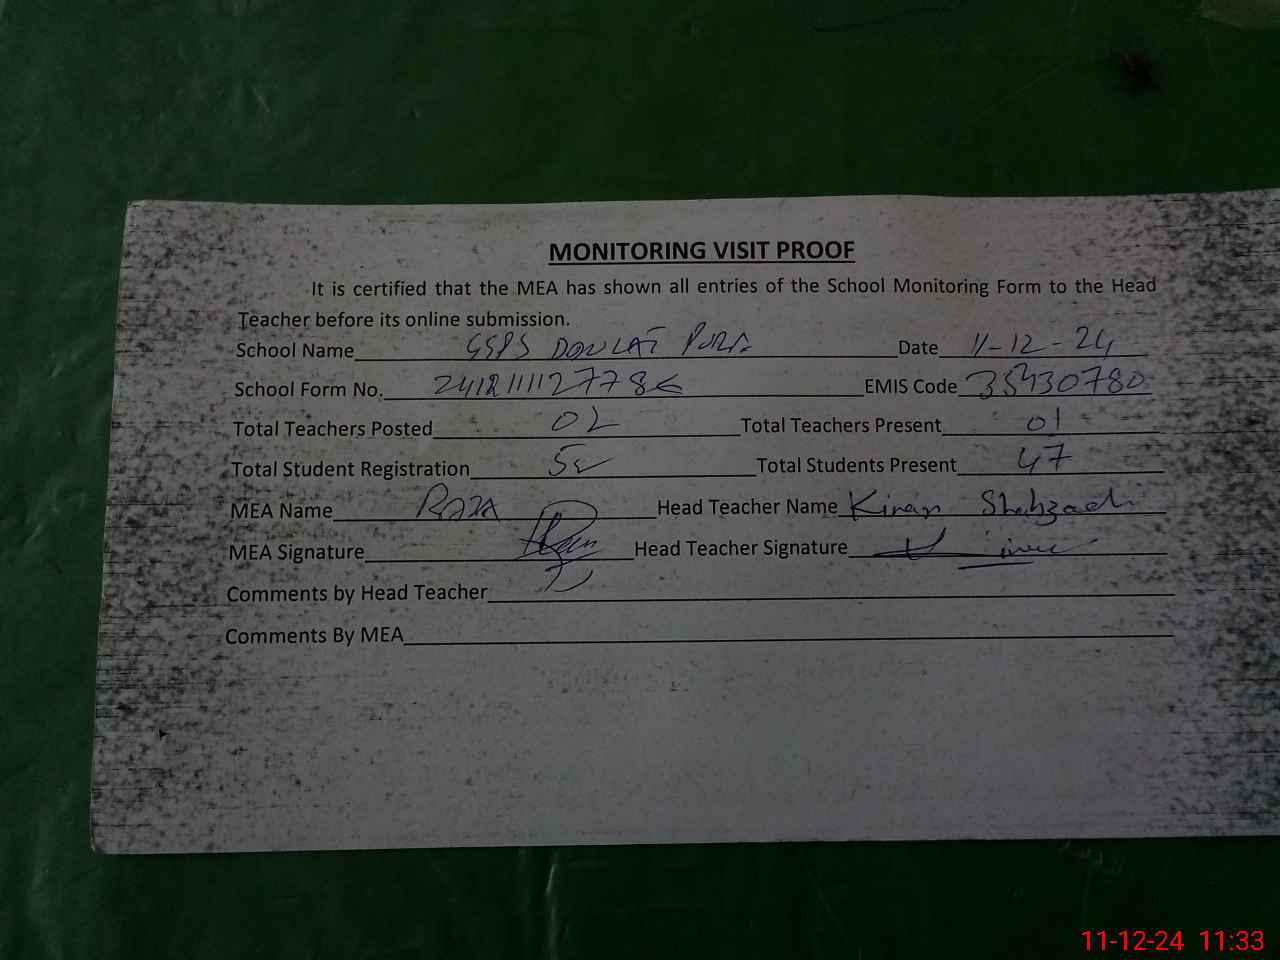 MONITORING VISIT PROOF
It is certified that the MEA has shown all entries of the School Monitoring Form to the Head
Teacher before its online submission.
School Name GSPS DOULAT PURA Date 11-12-24
School Form No. EMIS Code 35430780
Total Teachers Posted 02 Total Teachers Present 01
Total Student Registration Total Students Present 47
MEA Name RAZA Head Teacher Name Kiran Shahzadi
MEA Signature Head Teacher Signature
Comments by Head Teacher
Comments By MEA
11-12-24 11:33